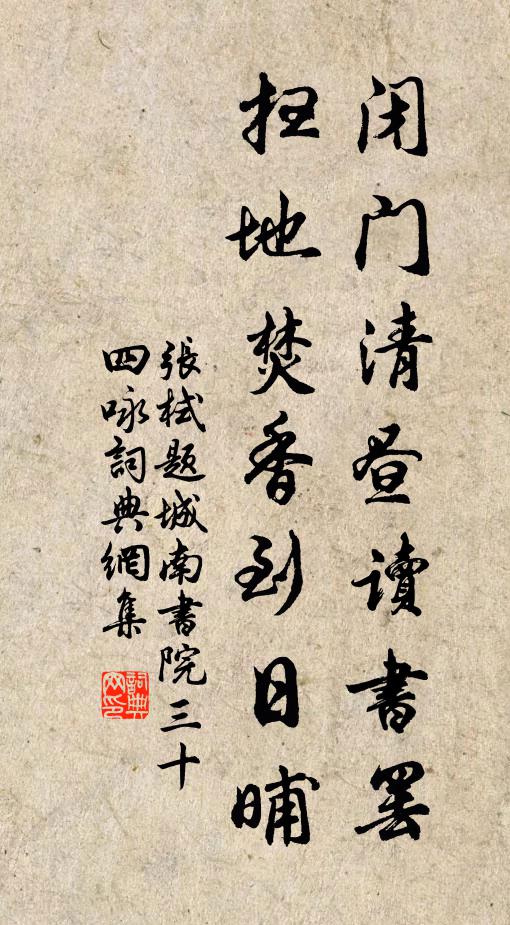 闭门清昼读书罢
扫地焚香到日晡
張栻题城南書院三十
四咏詞典網集
詞典
网印